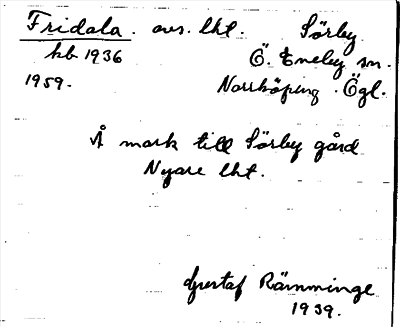 Fridala. avs. lht. Sörby
kb 1936 Ö. Eneby sn.
1959. Norrköping. Ögl.
Å mark till Sörby gård
Nyare lht.
Gustaf Rämminge
1939.